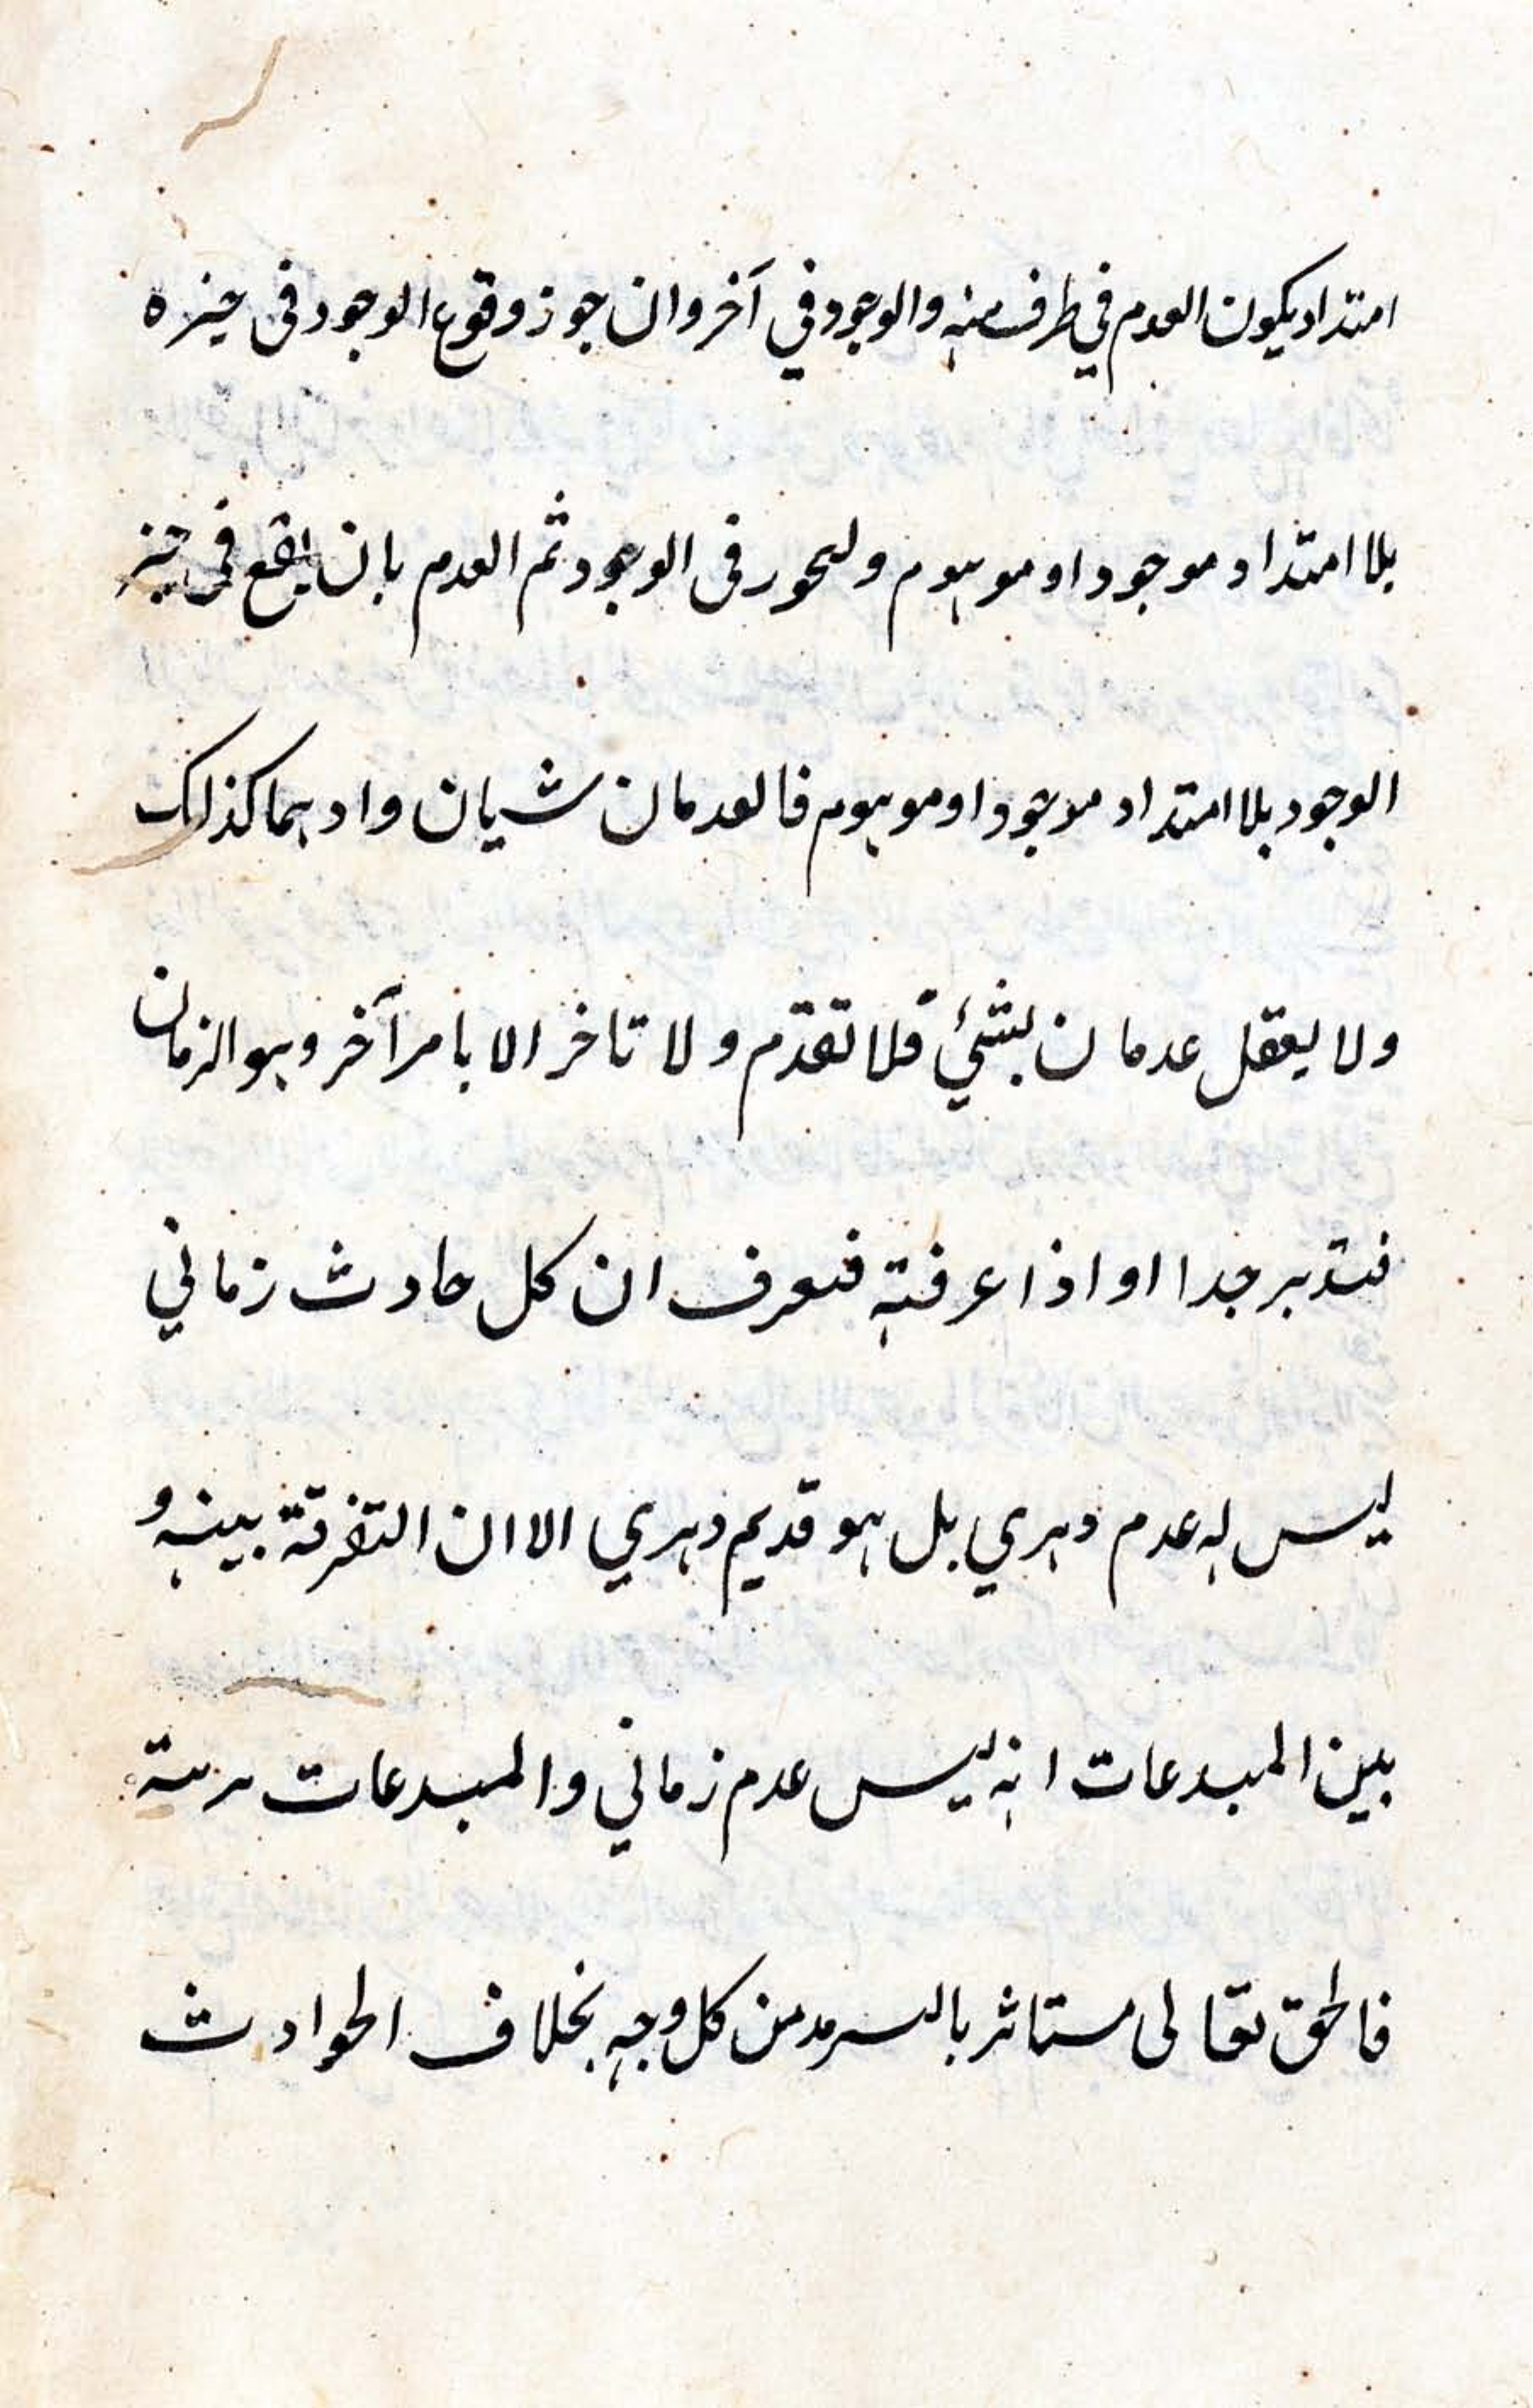 امتداد يكون العدم في طرف منه والوجود في آخر وان جوز وقوع الوجود فى حيزه
بلا امتداد موجود او موهوم وليجوز فى الوجود ثم العدم بان يقع فى حيز
الوجود بلا امتداد موجود او موهوم فالعدمان شيان واد هما كذلك
ولا يعقل عدمان لشئي فلا تقدّم ولا تاخر الا بامر آخر وهو الزمان
فتدبر جدا او اذا عرفته فتعرف ان كل حادث زماني
ليس له عدم دهري بل هو قديم دهري الا ان التفرقة بينه و
بين المبدعات انه ليس عدم زماني والمبدعات
فالحق تعالى مستاثر بالسرمد من كل وجه بخلاف الحوادث